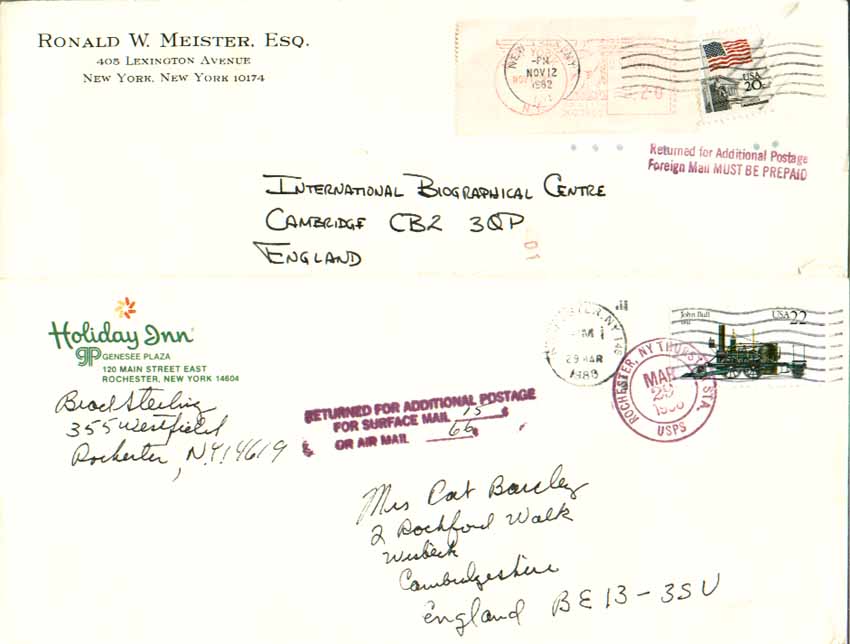 RONALD W. MEISTER, ESQ.
405 LEXINGTON AVENUE
NEW YORK, NEW YORK 10174
NEW
NY
PM
NOV 12
1982
N.Y.
USA
20c
Returned for Additional Postage
Foreign Mail MUST BE PREPAID
INTERNATIONAL BIOGRAPHICAL CENTRE
CAMBRIDGE CB2 3QP
ENGLAND
Holiday Inn
GP GENESEE PLAZA
120 MAIN STREET EAST
ROCHESTER, NEW YORK 14604
Brad Sterling
355 Westfield
Rochester, N.Y. 14619
RETURNED FOR ADDITIONAL POSTAGE
FOR SURFACE MAIL 15 ¢
OR AIR MAIL 66 ¢
PM
29 MAR
1988
John Bull
USA 22
ROCHESTER, NY THURSTON STA.
MAR
29
1988
USPS
Mrs Cat Barcley
2 Rochford Walk
Wisbech
Cambridgeshire
England BE13-3SU